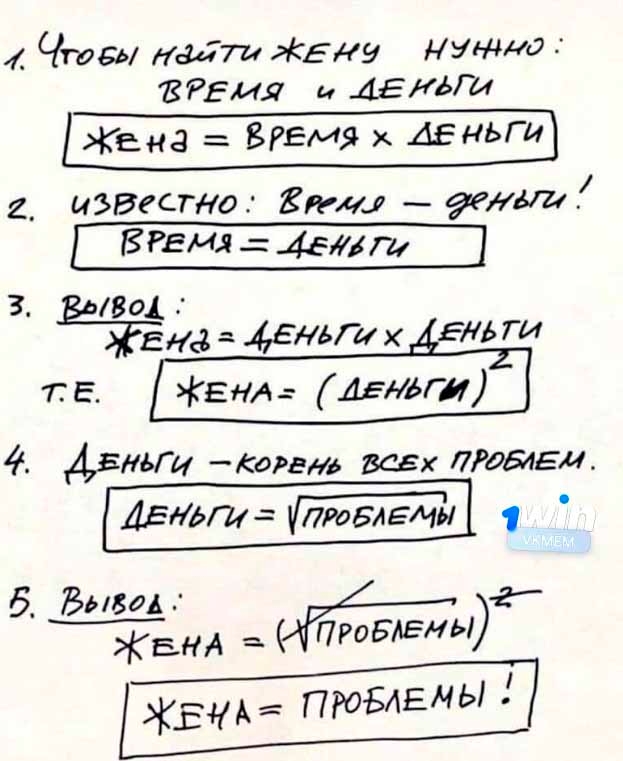 1. Чтобы найти жену нужно:
время и деньги
жена = время x деньги
2. известно: время – деньги!
время = деньги
3. Вывод:
жена = деньги x деньги
т.е. жена = (деньги)²
4. Деньги – корень всех проблем.
деньги = √проблемы
1win
VKMEM
5. Вывод:
жена = (√проблемы)²
жена = проблемы!